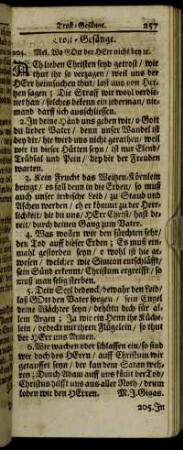 Trost-Gesänge. 257
Trost-Gesänge.
204. Mel. Wo GOtt der HErr nicht bey ꝛc.
ACh lieben Christen seyd getrost / wie
thut ihr so verzagen / weil uns der
HErr heimsuchen thut / last uns von Her-
tzen sagen: Die Straf wir wohl verdie-
net han / solches bekenn ein jederman / nie-
mand darff sich ausschliessen.
2. In deine Händ uns geben wir / o Gott
du lieber Vater / denn unser Wandel ist
bey dir / hie wird uns nicht gerathen / weil
wir in dieser Hütten seyn / ist nur Elend /
Trübsal und Pein / bey dir der Freuden
warten.
3. Kein Frucht das Weitzen-Körnlein
bringt / es fall denn in die Erden / so muß
auch unser irdischer Leib / zu Staub und
Aschen werden / eh er kommt zu der Herr-
lichkeit / die du uns / HErr Christ / hast be-
reit / durch deinen Gang zum Vater.
4. Was wollen wir denn fürchten sehr /
den Tod auff dieser Erden; Es muß ein-
mahl gestorben seyn / o wohl ist hie ge-
wesen / welcher wie Simeon entschläfft /
sein Sünd erkennt / Christum ergreifft / so
muß man selig sterben.
5. Dein Seel bedenck / bewahr den Leib /
laß GOtt den Vater sorgen / sein Engel
deine Wächter seyn / behütn dich für al-
lem Argen; Ja wie ein Henn ihr Küche-
lein / bedeckt mit ihren Flügelein / so thut
der HErr uns Armen.
6. Wir wachen oder schlaffen ein / so sind
wir doch des HErrn / auff Christum wir
getauffet seyn / der kan dem Satan weh-
ren; Durch Adam auff uns kömt der Tod /
Christus hilfft uns aus aller Noth / drum
loben wir den HErren. M. J. Gigas.
205. In